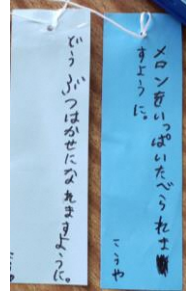 メロンをいっぱいたべられま
すように。
こうや
どうぶつはかせになれますように。